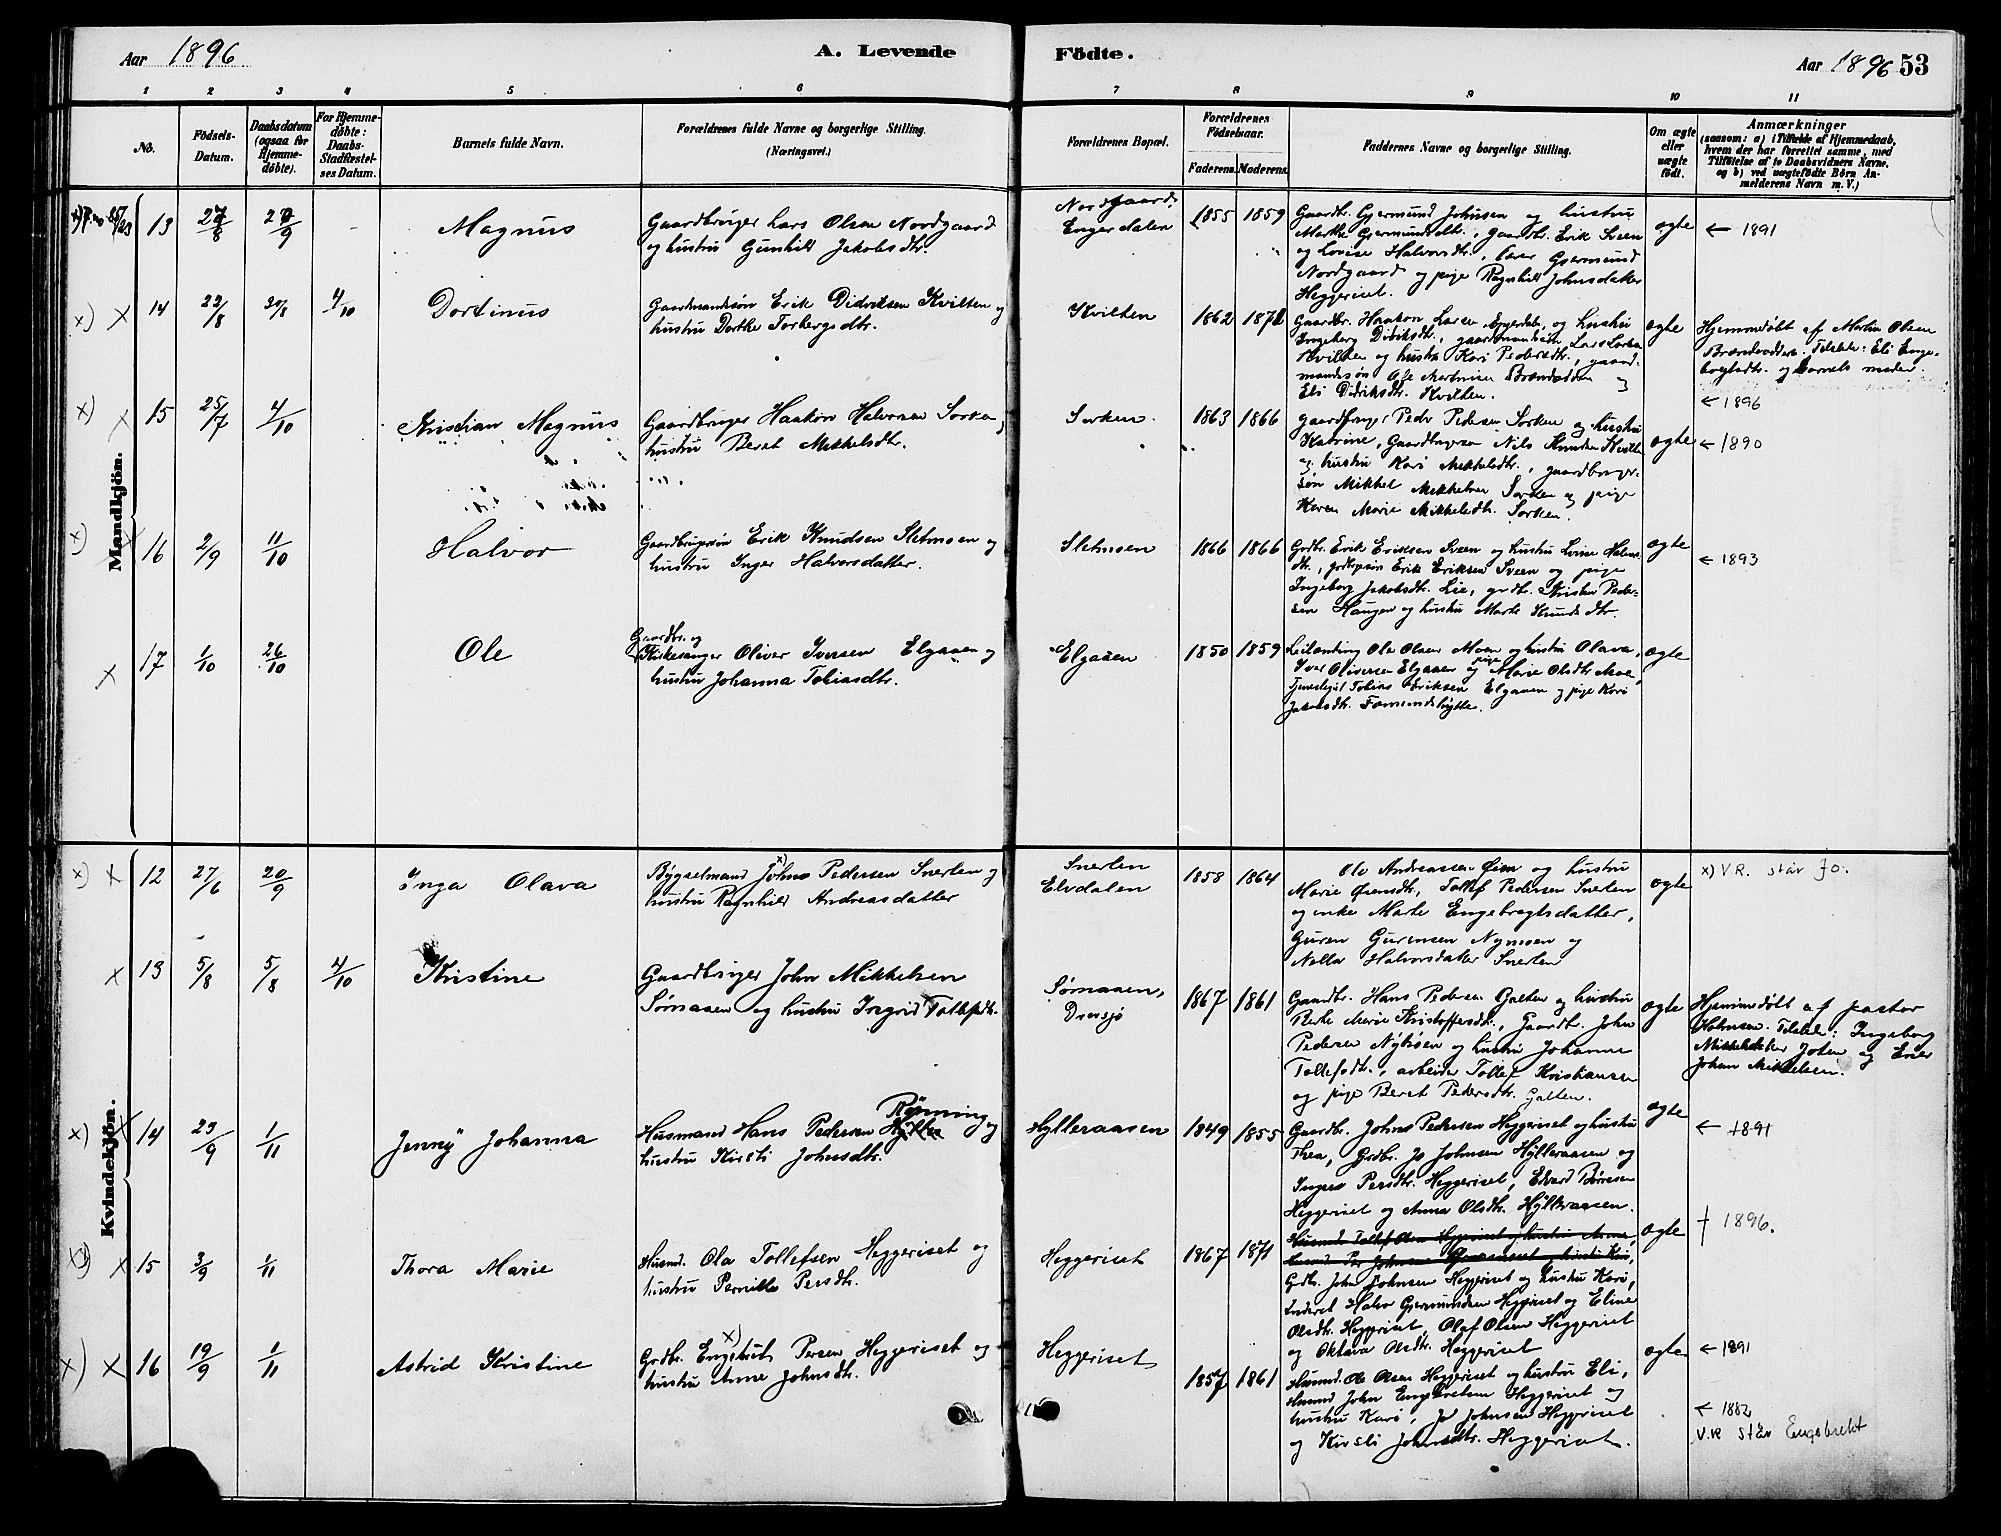 Aar 1896
A. Levende
Födte.
Aar 1896 53
1 2 3 4 5 6 7 8 9 10 11
No.
Födsels-
Datum.
Daabsdatum
(ogsaa for
Hjemme-
döbte).
For Hjemme-
döbte:
Daabs-
Stadfæstel-
ses Datum.
Barnets fulde Navn.
Forældrenes fulde Navne og borgerlige Stilling.
(Næringsvei.)
Forældrenes Bopæl.
Forældrenes
Födselsaar.
Faderens. Moderens.
Faddernes Navne og borgerlige Stilling.
Om ægte
eller
uægte
födt.
Anmærkninger
(saasom: a) i Tilfælde af Hjemmedaab,
hvem der har forrettet samme, med
Tilföielse af to Daabsvidners Navne,
og b) ved uægtefödte Börn An-
melderens Navn m. V.)
Mandkjön.
13 27/8 20/9 - Magnus
Gaardbruger Lars Olsen Nordgaard
og hustru Gunhild Jakobsdtr.
Nordgaard,
Engerdalen
1855 1859
Gaardbr. Gjermund Johnsen og hustru
Marthe Gjermundsdtr., gaardbr. Erik Sveen
og Lovise Halvorsdtr., Gjermund
Nordgaard og pige Ragnhild Johnsdatter
Heggeriset.
ægte
← 1891
x) x 14 22/8 30/8 4/10 Dortinus
Gaardmandssøn Erik Didriksen Kvilten og
hustru Dorthe Torbergsdtr.
Kvilten
1862 1872
Gaardbr. Haakon Larsen Eggerdalen, og hustru
Ingeborg Didriksdtr., gaardmandssøn Lars Larsen
Kvilten og hustru Kari Pedersdtr., gaard-
mandssøn Martinsen Brændvolden og
Eli Didriksdtr. Kvilten.
ægte
Hjemmedøbt af Martin Olsen
Brændvolden. Tilstede: Eli Enge-
bregtsdtr. og barnets moder.
← 1896
x) x 15 25/7 4/10 Kristian Magnus
Gaardbruger Haakon Halvorsen Sorken og
hustru Beret Mikkelsdtr.
Sorken.
1863 1866
Gaardbruger Peder Pedersen Sorken og hustru
Katrine, Gaardbruger Nils Knudsen Kvilten
og hustru Kari Mikkelsdtr., gaardbruger-
søn Mikkel Mikkelsen Sorken og pige
Karen Marie Mikkelsdtr. Sorken.
ægte
← 1890
x) x 16 2/9 11/10 Halvor
Gaardbrugersøn Erik Knudsen Sletmoen og
hustru Inger Halvorsdatter.
Sletmoen
1866 1866
Grdbr. Erik Eriksen Sveen og hustru Lovise Halvors-
dtr., Erik Eriksen Sveen og pige
Ingeborg Jakobsdtr. Lie, grdbr. Kristen Peder-
sen Haugen og hustru Marte Knudsdtr.
ægte
← 1893
x 17 1/10 26/10 Ole
Gaardbr. og
Kirkesanger Oliver Iversen Elgaaen og
hustru Johanna Tobiasdtr.
Elgaaen
1850 1859
Leilænding Ole Olsen Moen og hustru Olava,
Iver Oliversen Elgaaen og pige Marie Olsdtr. Moe,
Tobias Eriksen Elgaaen og pige Kari
Jakobsdtr. Fæmundshytte.
ægte
Kvindekjön.
x) x 12 27/6 20/9 Inga Olava
Bygselmand Johns x) Pedersen Snerten og
hustru Ragnhild Andreasdatter
Snerten
Elvdalen
1858 1864
Ole Andreassen Øien og hustru
Marie, Tollef Pedersen Snerten
og enke Marte Engebregtsdatter,
Guren Gurensen Nymoen og
Nella Halvorsdatter Snerten
ægte
x) V.R. står Jo.
x 13 5/8 5/8 4/10 Kristine
Gaardbruger John Mikkelsen
Sømaaen og hustru Ingrid Tollefsdtr.
Sømaaen,
Drevsjø
1867 1861
Gaardbr. Hans Pedersen Galten og hustru
Marie Kristoffersdtr., Gaardbr. John
Pedersen og hustru Johanne
Tollefsdtr., arbeider Tollef Kristiansen
og pige Beret Pedersdtr. Galten.
ægte
Hjemmedøbt af pastor
Holmsen. Tilstede: Ingeborg
Mikkelsdatter og
Johan Mikkelsen.
x) x 14 23/9 1/11 Jenny Johanna
Husmand Hans Pedersen Rønning og
hustru Kirsti Johnsdtr.
Hylleraasen
1849 1855
Gaardbr. Johns Pedersen Heggeriset og hustru
Thea, Grdbr. Jo Johnsen Hylleraasen og
Persdtr. Heggeriset, Edvard Børresen
Heggeriset og Anna Olsdtr. Hylleraasen.
ægte
← 1891
x) x 15 3/9 1/11 Thora Marie
Husmd. Ola Tollefsen Heggeriset og
hustru Pernille Persdtr.
Heggeriset
1867 1871
Grdbr. John Johnsen Heggeriset og hustru Kari,
Inderst Halvor Gjermundsen Heggeriset og Eline
Olsdtr. Heggeriset, Olaf Olsen Heggeriset
og Oktava Olsdtr. Heggeriset
ægte
† 1896.
x) x 16 19/9 1/11 Astrid Kristine
Grdbr. Engebret x) Persen Heggeriset og
hustru Anne Johnsdtr.
Heggeriset
1857 1861
Husmd. Ole Olsen Heggeriset og hustru Eli,
Husmd. John Engebretsen Heggeriset og
hustru Kari, Jo Johnsen Heggeriset
og Kirsti Johnsdtr. Heggeriset.
ægte
← 1891
← 1882
V.R står Engebrekt